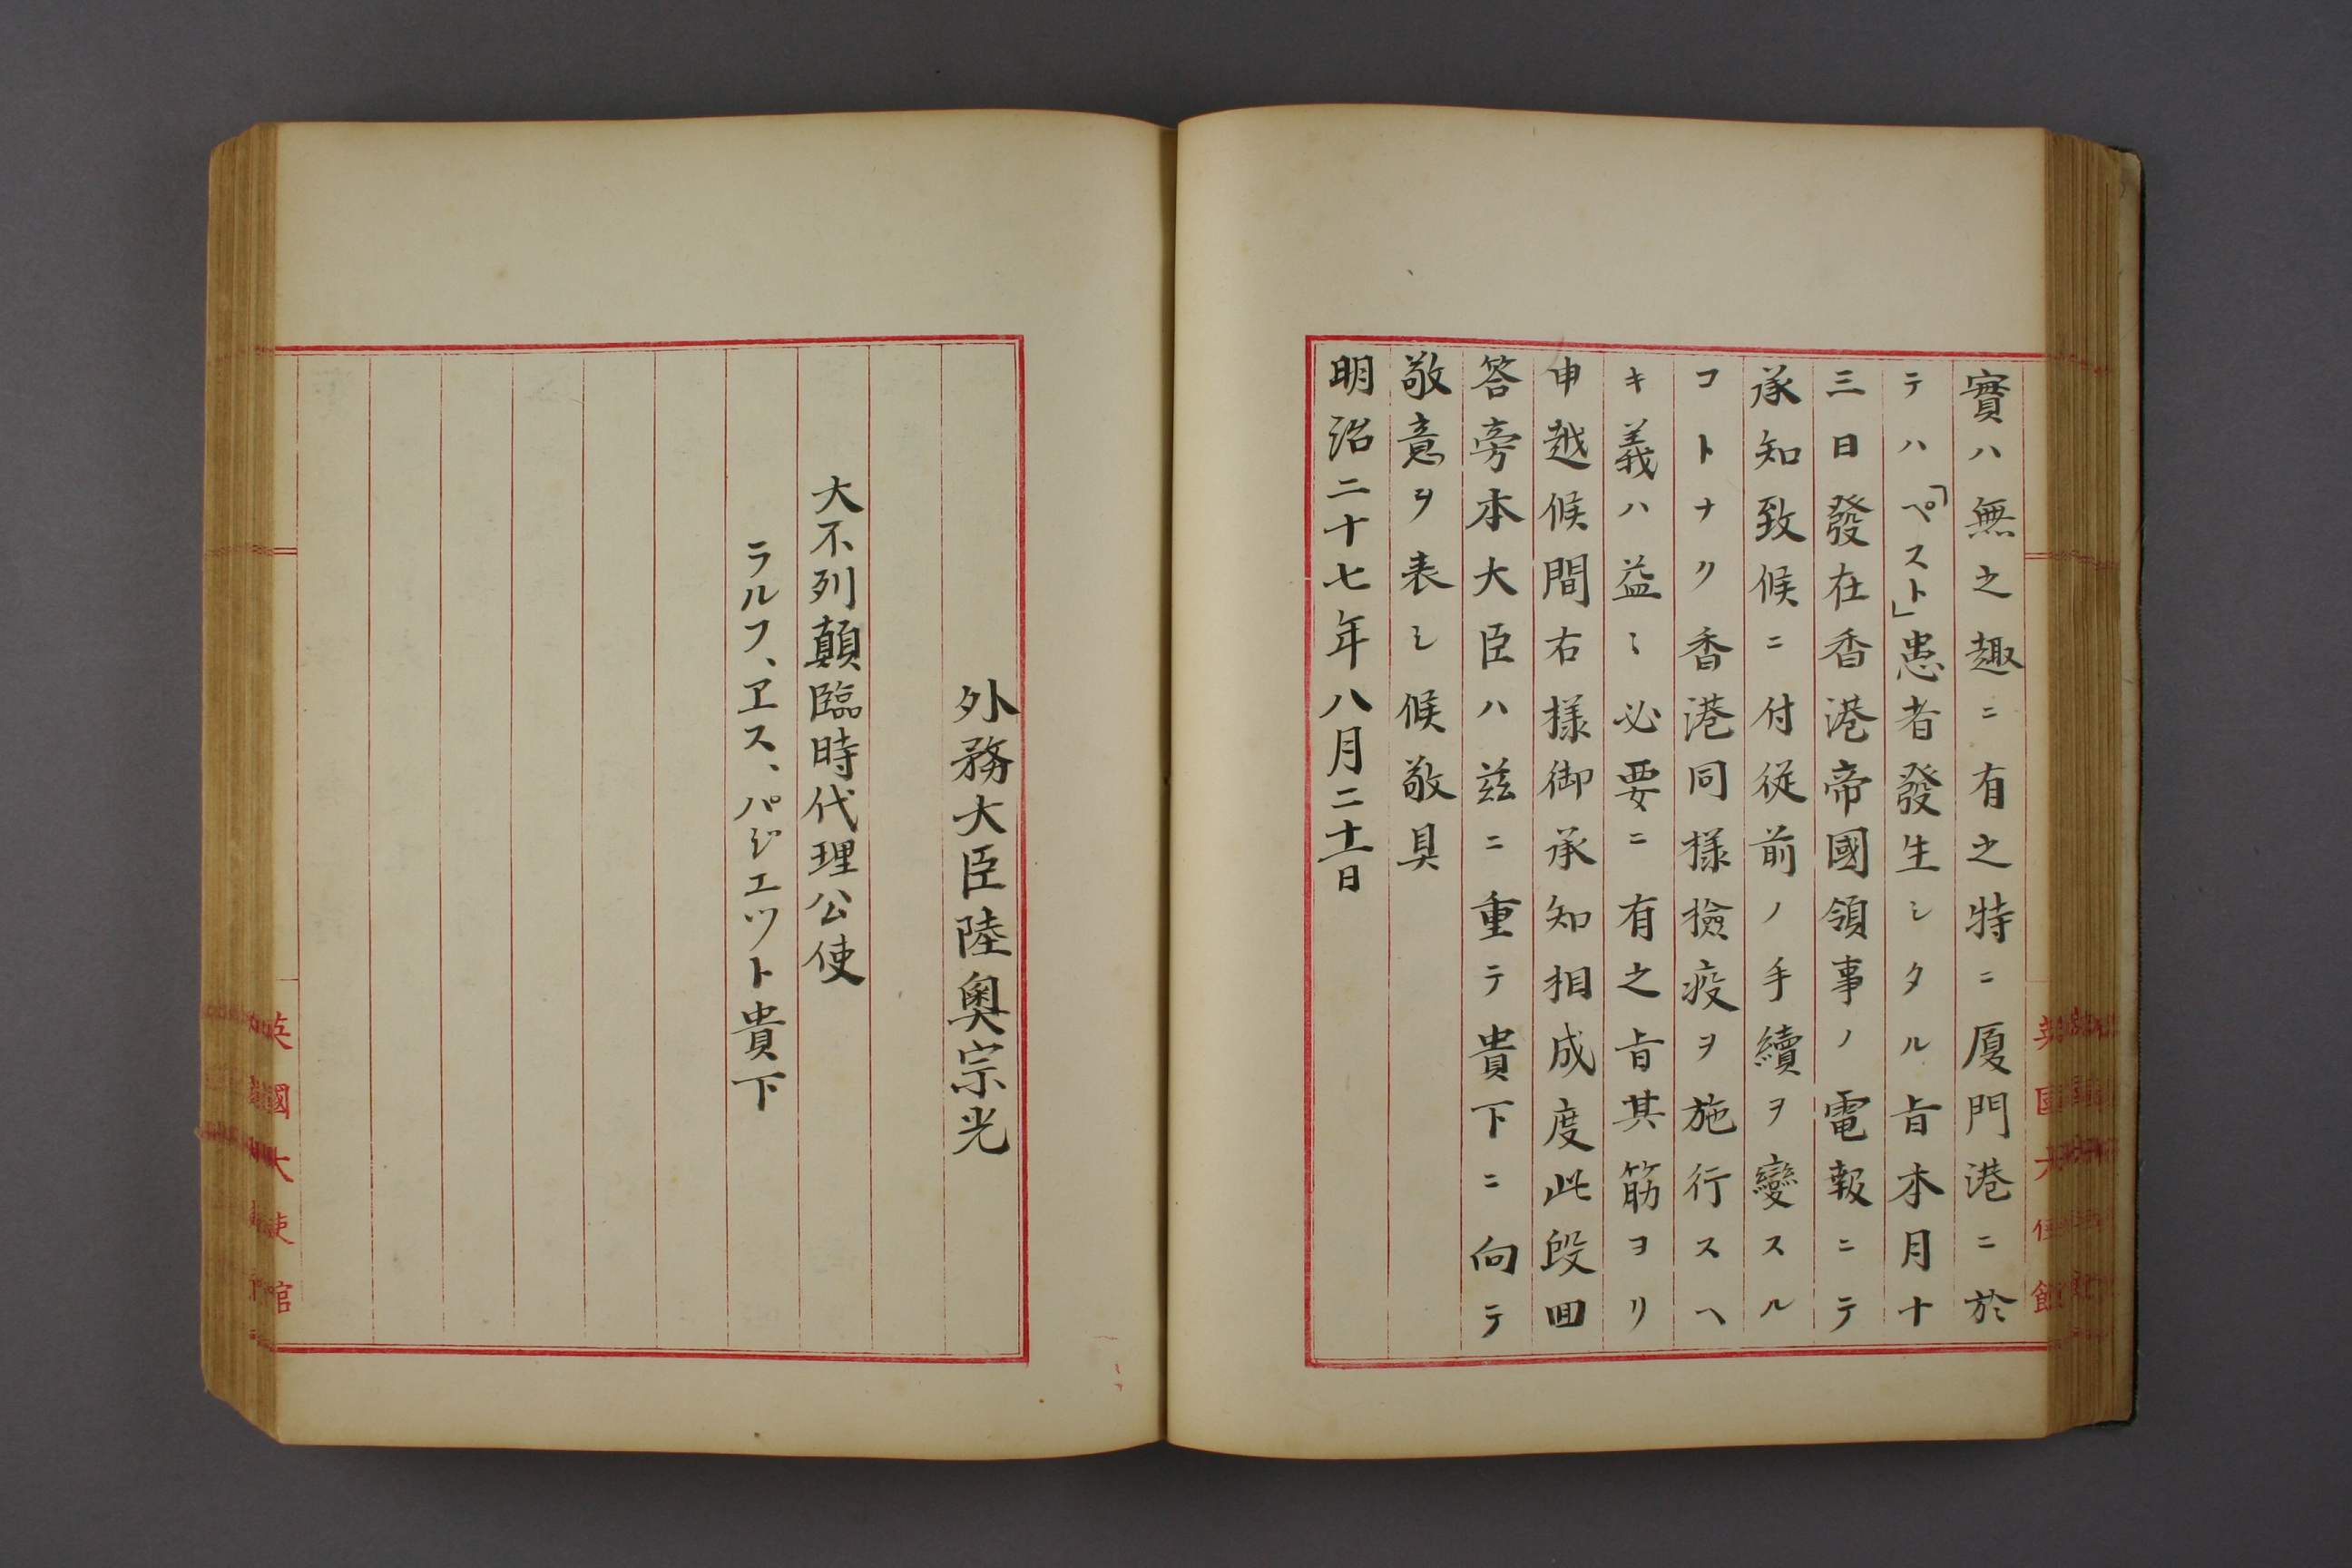 實ハ無之趣ニ有之特ニ厦門港ニ於
テハ「ペスト」患者發生シタル旨本月十
三日發在香港帝國領事ノ電報ニテ
承知致候ニ付従前ノ手續ヲ變スル
コトナク香港同様撿疫ヲ施行スヘ
キ義ハ益〻必要ニ有之旨其筋ヨリ
申越候間右様御承知相成度此段回
答旁本大臣ハ玆ニ重テ貴下ニ向テ
敬意ヲ表シ候敬具
明治二十七年八月二十二日
外務大臣陸奥宗光
大不列顛臨時代理公使
ラルフ、ヱス、パジエツト貴下
英國大使館